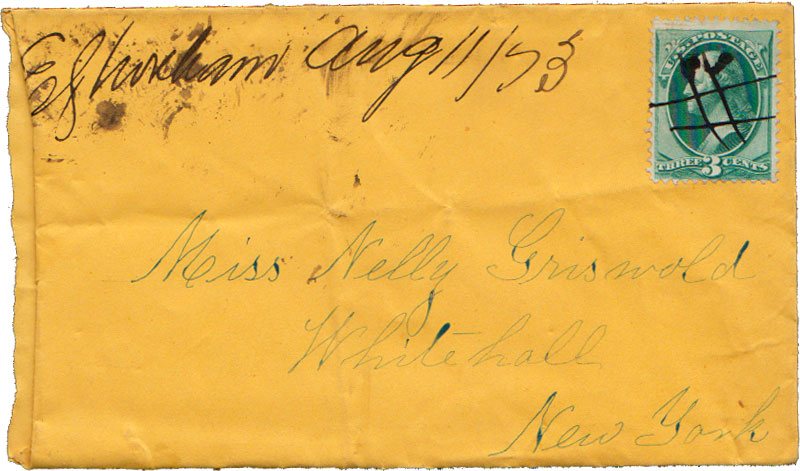 E Shoreham Aug 11/73
U.S. POSTAGE
THREE 3 CENTS
Miss Nelly Griswold
Whitehall
New York